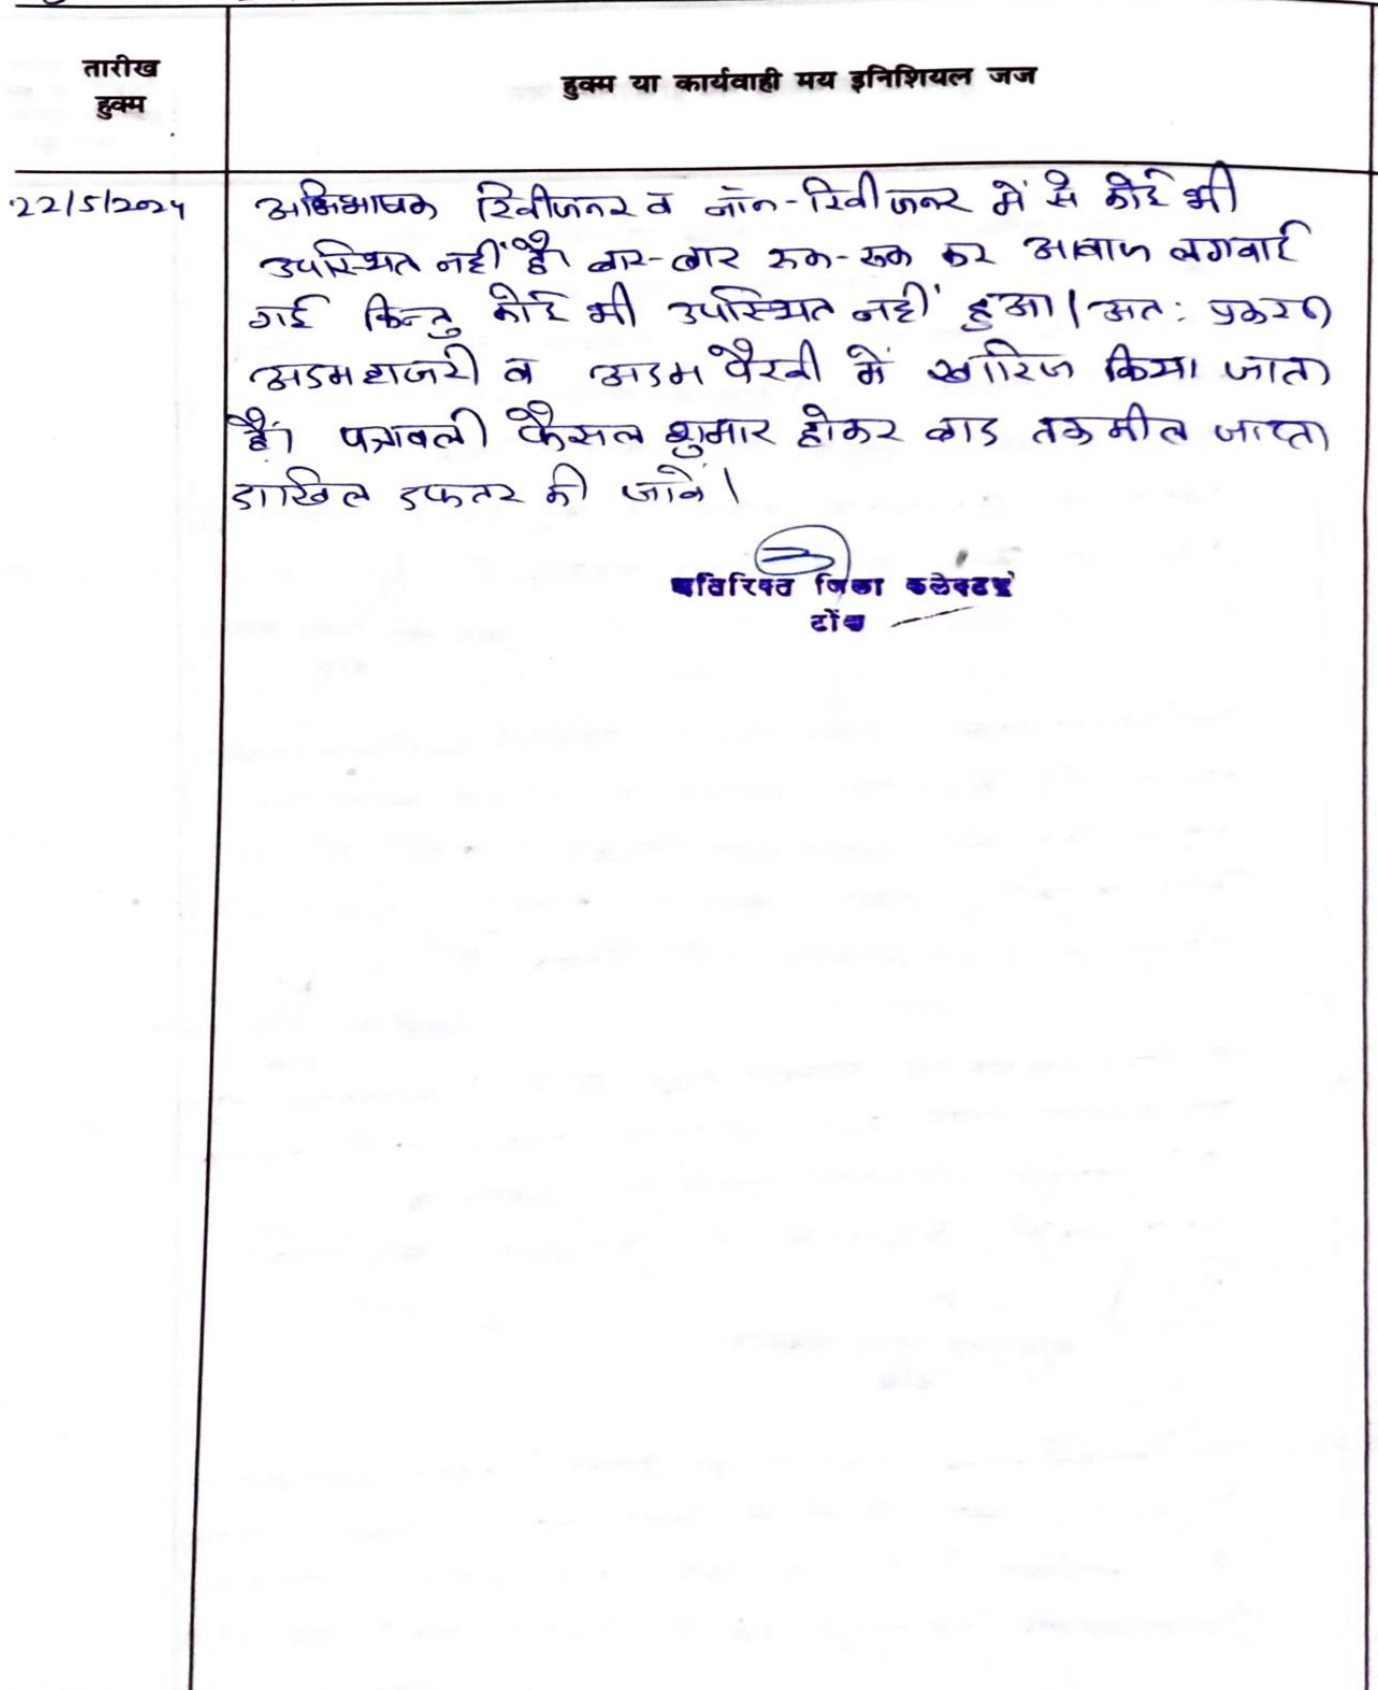 तारीख
हुक्म
हुक्म या कार्यवाही मय इनिशियल जज
22/5/2024
अभिभाषक रिवीजनर व नॉन-रिवीजनर में से कोई भी
उपस्थित नहीं है। बार-बार रुक-रुक कर आवाज लगवाई
गई किन्तु कोई भी उपस्थित नहीं हुआ। अत: प्रकरण
अदमहाजरी व अदम पैरवी में खारिज किया जाता
है। पत्रावली फैसल शुमार होकर बाद तकमील जाप्ता
दाखिल दफ्तर की जावें।
अतिरिक्त जिला कलेक्टर
टोंक